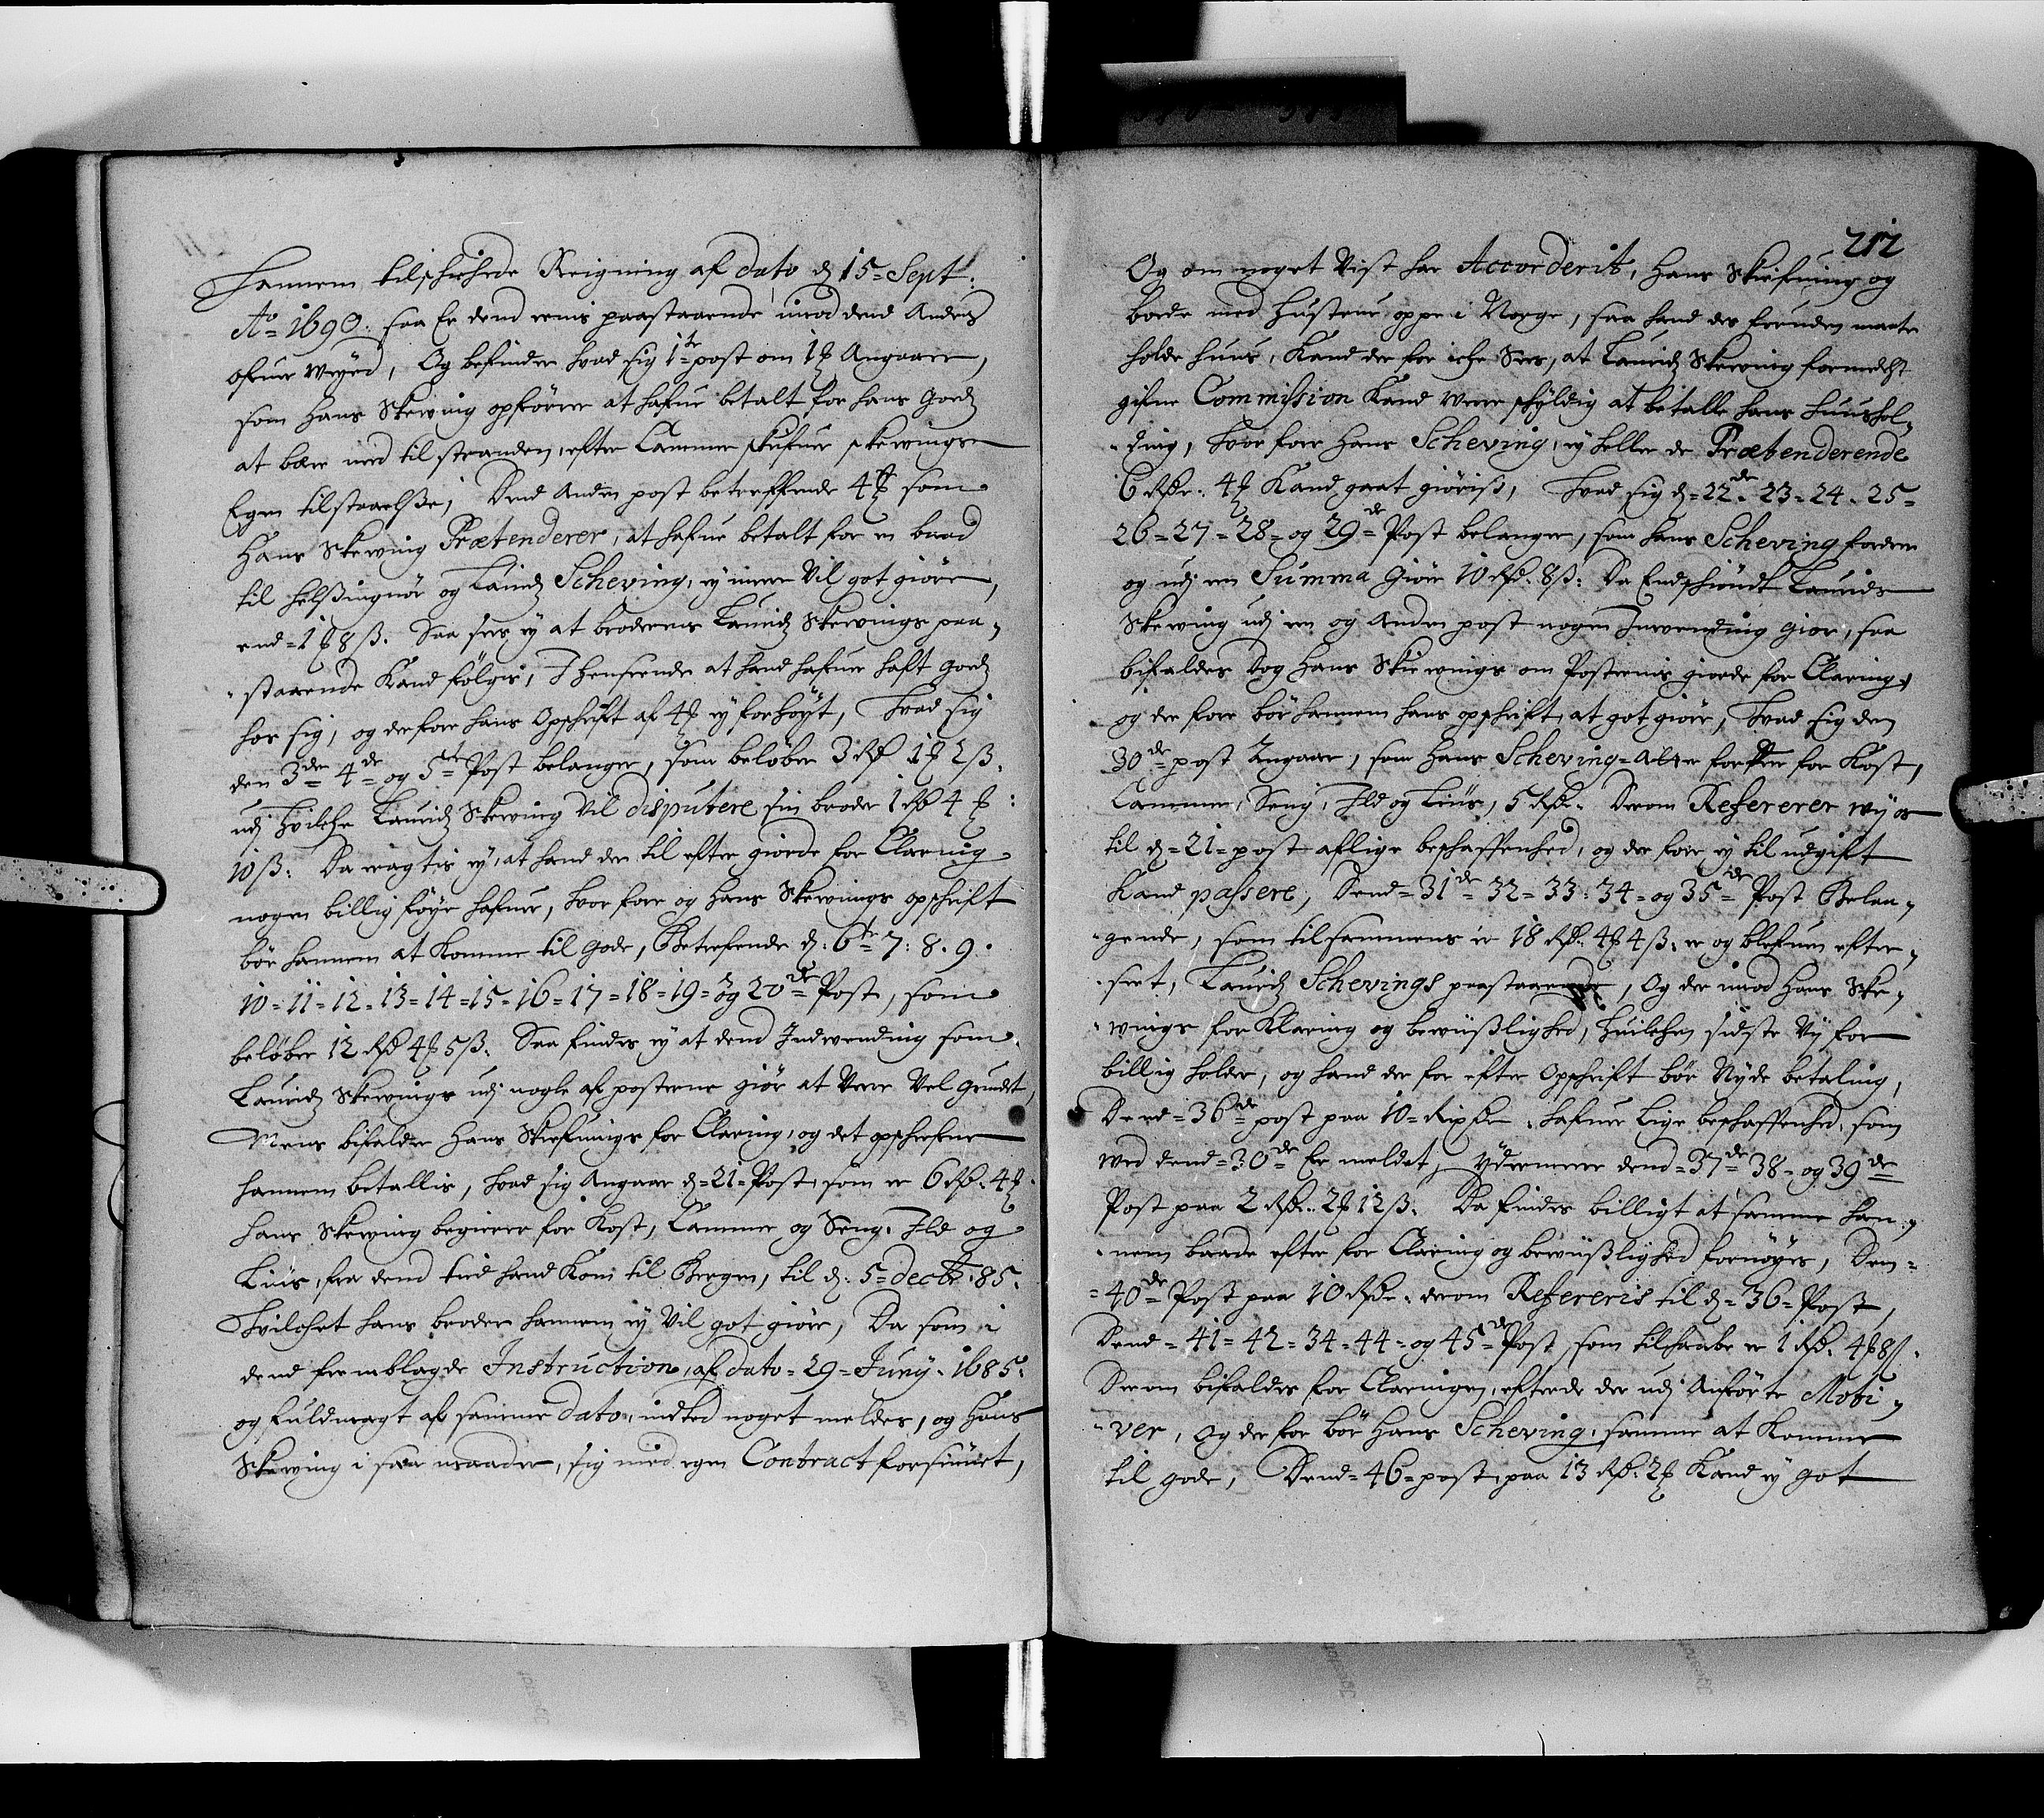 Hannem tilschichede Reigning af dato d 15 = Sept:
Ao 1690. saa Er dend eenis paastaaende imod dend Anders
ofuer weyed, Og befinder hvad sig 1te post om 1 ₰ Angaar,
som Hans Skewing opförer at hafue betalt for hans Goedz
at bære ned til stranden, efter Cammer skrifuer skewingse
Egen tilstaaelsse, Dend Anden post betreffende 4 ₰ som
Hans Skewing Prætenderer, at hafue betalt for en baad
til Helssingnör og Lauridz Scheving, ey meere Vil got giöre,
end = 1 ₰ 8 ß. Saa sees ey at broderens Lauridz Skewings paa„
„staaende Kand fölgis, I Henseende at hand hafuer haft goedz
hos sig, og derfore hans Opschrift af 4 ₰ ey forhöyt, Hvad sig
den 3de 4de og 5te Post belanger, som belöber 3 Rd 1 ₰ 2 ß.
udj Hvilche Lauridz Skewing Vil disputere sin broder 1 Rd 4 ₰:
10 ß: Da eragtis ey, at hand der til efter giorde for Claring
nogen billig föye hafuer, hvor fore og Hans Skewings opschrift
bör hannem at Komme til gode, Betrefende d: 6te 7: 8. 9.
10 = 11 = 12 = 13 = 14 = 15 = 16 = 17 = 18 = 19 = og 20de Post, som
belöber 12 Rd 4 ₰ 5 ß. Saa findis ey at dend Indwending som
Lauridz Skewings udj nogle af posterne giör at Vere Vel grundet,
Mens bifalder Hans Skiefuings for Claring, og det opschrefne
hannem betallis, hvad sig Angaar d = 21 = Post, som er 6 Rd. 4 ₰.
Hans Skewing begierer for Kost, Cammer og Seng, Ild og
Liüs, fra dend tiid hand Kom til Bergen, til d: 5 = decbr: 85.
Hvilchet hans broder hannem ey Vil got giöre, Da som i
dend fremblagde Instruction, af dato = 29 = Juny. 1685.
og fuldmagt af samme dato, indted noget meldes, og Hans
Skewing i saa maader, sig med egen Contract forsiunet,
212
Og om noget Vist har Accorderit, Hans Skiefuing og
boede med Hustrue oppe i Norge, saa hand des foruden maate
holde huus, Kand der for iche Sees, at Lauridz Skewing formedelst
gifne Commission Kand were schyldig at betalle hans huushol„
„ding, Hvor fore Hans Scheving, ey heller de Prætenderende
6 Rdr. 4 ₰ Kand gaat giöriß, Hvad sig d = 22de 23 = 24 = 25 =
26 = 27 = 28 = og 29de Post belanger, som hans Scheving fordrer
og udj een Summa Giör 10 Rd. 8 ß: Da Endschiöndt Laurids
Skewing udj een og Anden post nogen Inwending giör, saa
bifaldes dog Hans Skiewings om Posternis giorde for Claring,
og der fore bör hannem hans opschrift, at got giöre, Hvad sig den
30de post Angaar, som Hans Scheving = for Kost,
Cammer, Seng, Ild og Liüs, 5 Rdr. Derom Refererer wij os
til d = 21 = post aflige beschaffenhed, og der fore ey til udgift
Kand passere, Dend = 31de 32 = 33 = 34 = og 35de Post Belan„
„gende, som tilsammens er 18 Rd. 4 ₰ 4 ß. er og blefuen efter„
„seet, Lauridz Schevings paastaaende, Og der imod Hans Ske„
„wings for Klaring og bewiißlighed, Huilchen sidste Vij for
billig holder, og hand der for efter Opschrift bör Nyde betaling,
Dend = 36de post paa 10 = Rixdr. hafuer Lige beschaffenhed, som
wed dend = 30de Er meldet, Ydermere dend = 37de 38 = og 39de
Post paa 2 Rdr. 2 ₰ 12 ß. Da findes billigt at samme han„
„nem baade efter for Claring og bewiißlighed fornöyes, Den =
= 40de Post paa 10 Rdr. derom Refereris til d = 36 = Post,
Dend = 41 = 42 = 34 = 44 = og 45de Post, som tilhaabe er 1 Rd. 4 ₰ 8 ß.
Derom bifaldes for Claringen, efter de der udj Anförte Moti„
„ver, og der for bör Hans Scheving, samme at Komme
til gode, Dend = 46 = post, paa 13 Rd. 2 ₰ Kand ey got